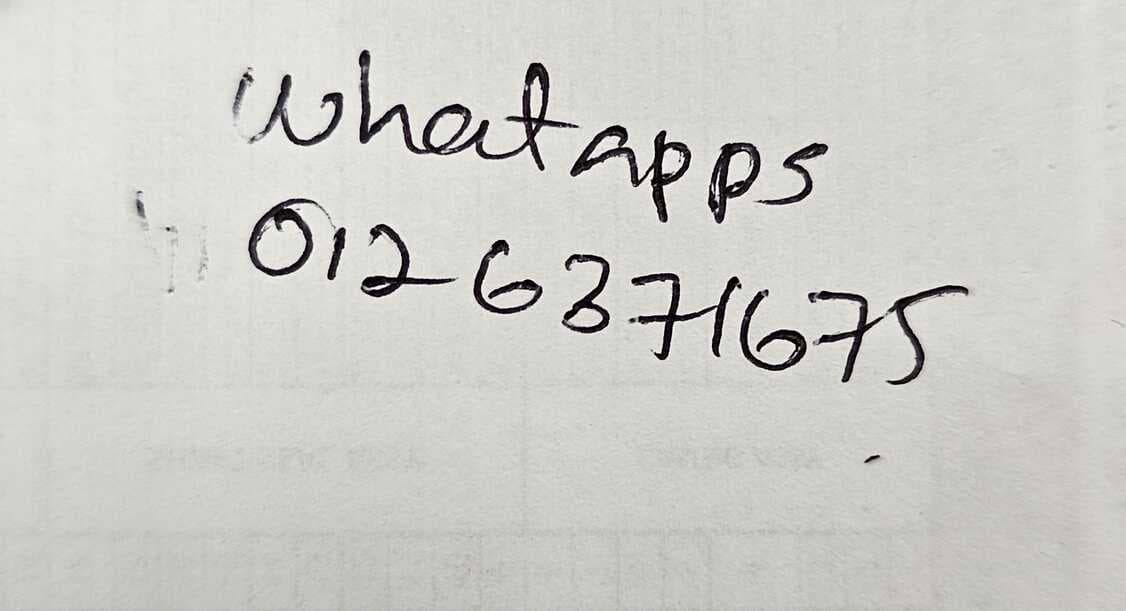 Whatapps
012 6371675